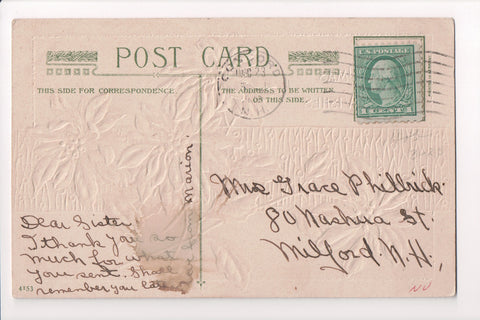 POST CARD
THIS SIDE FOR CORRESPONDENCE.
THE ADDRESS TO BE WRITTEN
ON THIS SIDE.
DEC 23
N.H.
U.S. POSTAGE
1 CENT 1
Mrs Grace Philbrick
80 Nashua St.
Milford. N.H.,
Dear Sister
I thank you so
much for what
you sent. Shall
remember you later
Marion.
4153